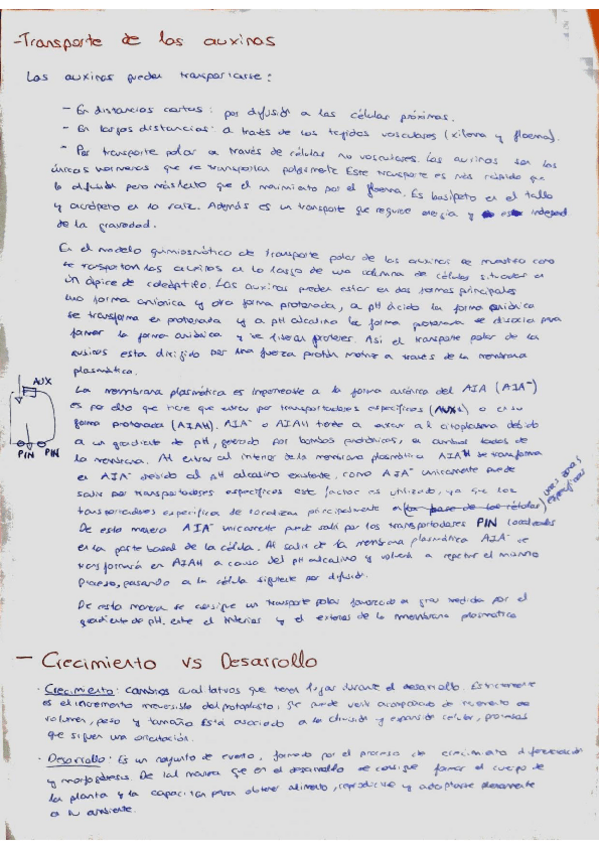 -Transporte de las auxinas
Las auxinas pueden transportarse:
- En distancias cortas: por difusión a las células próximas.
- En largas distancias: a través de los tejidos vasculares (xilema y floema).
- Por transporte polar a través de células no vasculares. Las auxinas son las
únicas hormonas que se transportan polarmente. Este transporte es más rápido que
la difusión pero más lento que el movimiento por el floema. Es basípeto en el tallo
y acrópeto en la raíz. Además es un transporte que requiere energía y es
de la gravedad.
En el modelo quimiosmótico de transporte polar de las auxinas se muestra como
se transportan las auxinas a lo largo de una columna de células situadas en
un ápice de coleóptilo. Las auxinas pueden estar en dos formas principales
una forma aniónica y otra forma protonada, a pH ácido la forma
se transforma en protonada y a pH alcalino la forma protonada se disocia para
formar la forma y se liberan protones. Así el transporte polar de la
auxinas esta dirigido por una fuerza protón motriz a través de la membrana
plasmática.
AUX
PIN PIN
La membrana plasmática es impermeable a la forma aniónica del AIA (AIA⁻)
es por ello que tiene que entrar por transportadores específicos (AUX1) o en su
forma protonada (AIAH). AIA⁻ o AIAH tiende a entrar al citoplasma debido
a un gradiente de pH, generado por bombas protónicas, a ambos lados de
la membrana. Al entrar al interior de la membrana plasmática AIAH se transforma
en AIA⁻ debido al pH alcalino existente, como AIA⁻ unicamente puede
salir por transportadores específicos este factor es utilizado, ya que los
transportadores específicos se localizan principalmente en (la base de las células)
unas zonas
específicas
De esta manera AIA⁻ unicamente puede salir por los transportadores PIN localizados
en la parte basal de la célula. Al salir de la membrana plasmática AIA⁻ se
transformará en AIAH a causa del pH alcalino y volverá a repetir el mismo
proceso, pasando a la célula siguiente por difusión.
De esta manera se consigue un transporte polar favorecido en gran medida por el
gradiente de pH entre el interior y el exterior de la membrana plasmática
- Crecimiento vs Desarrollo
· Crecimiento: cambios cualitativos que tienen lugar durante el desarrollo. Estrictamente
es el incremento irreversible del protoplasto, se puede venir acompañado de incremento de
volumen, peso y tamaño. Está asociado a la división y expansión celular, procesos
que siguen una orientación.
· Desarrollo: Es un conjunto de eventos, formado por el proceso de crecimiento diferenciación
y morfogénesis. De tal manera que en el desarrollo se consigue formar el cuerpo de
la planta y la capacitan para obtener alimento, reproducirse y adaptarse plenamente
a su ambiente.